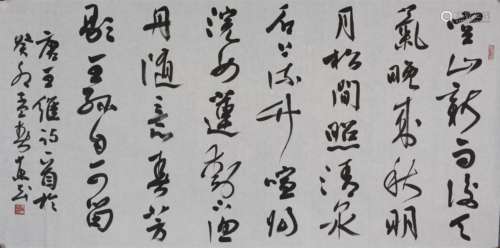 空山新雨後天
氣晚来秋明
月松間照清泉
石上流竹喧归
浣女蓮動下漁
舟随意春芳
歇王孫自可留
唐王維诗一首於
癸卯孟春书